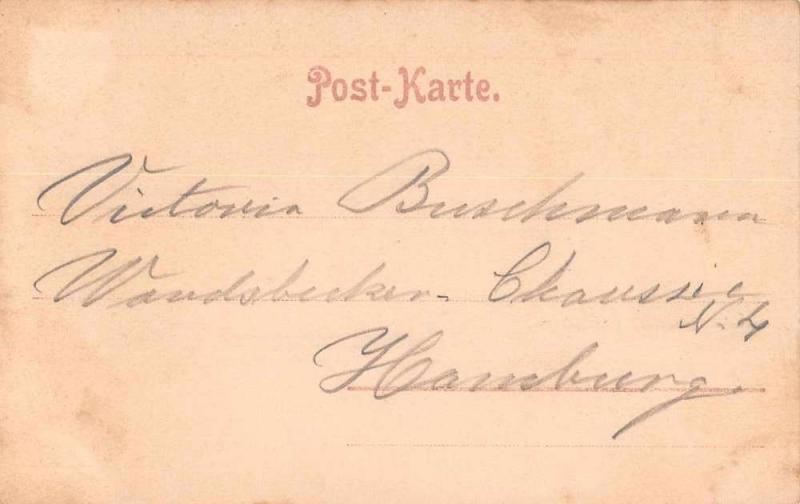 Post-Karte.
Victoria Buschmann
Wandsbecker- Chaussee
N. 4
Hamburg.